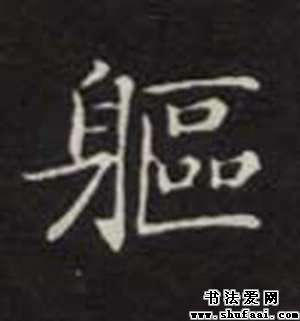 軀
书法爱网
www.shufaai.com